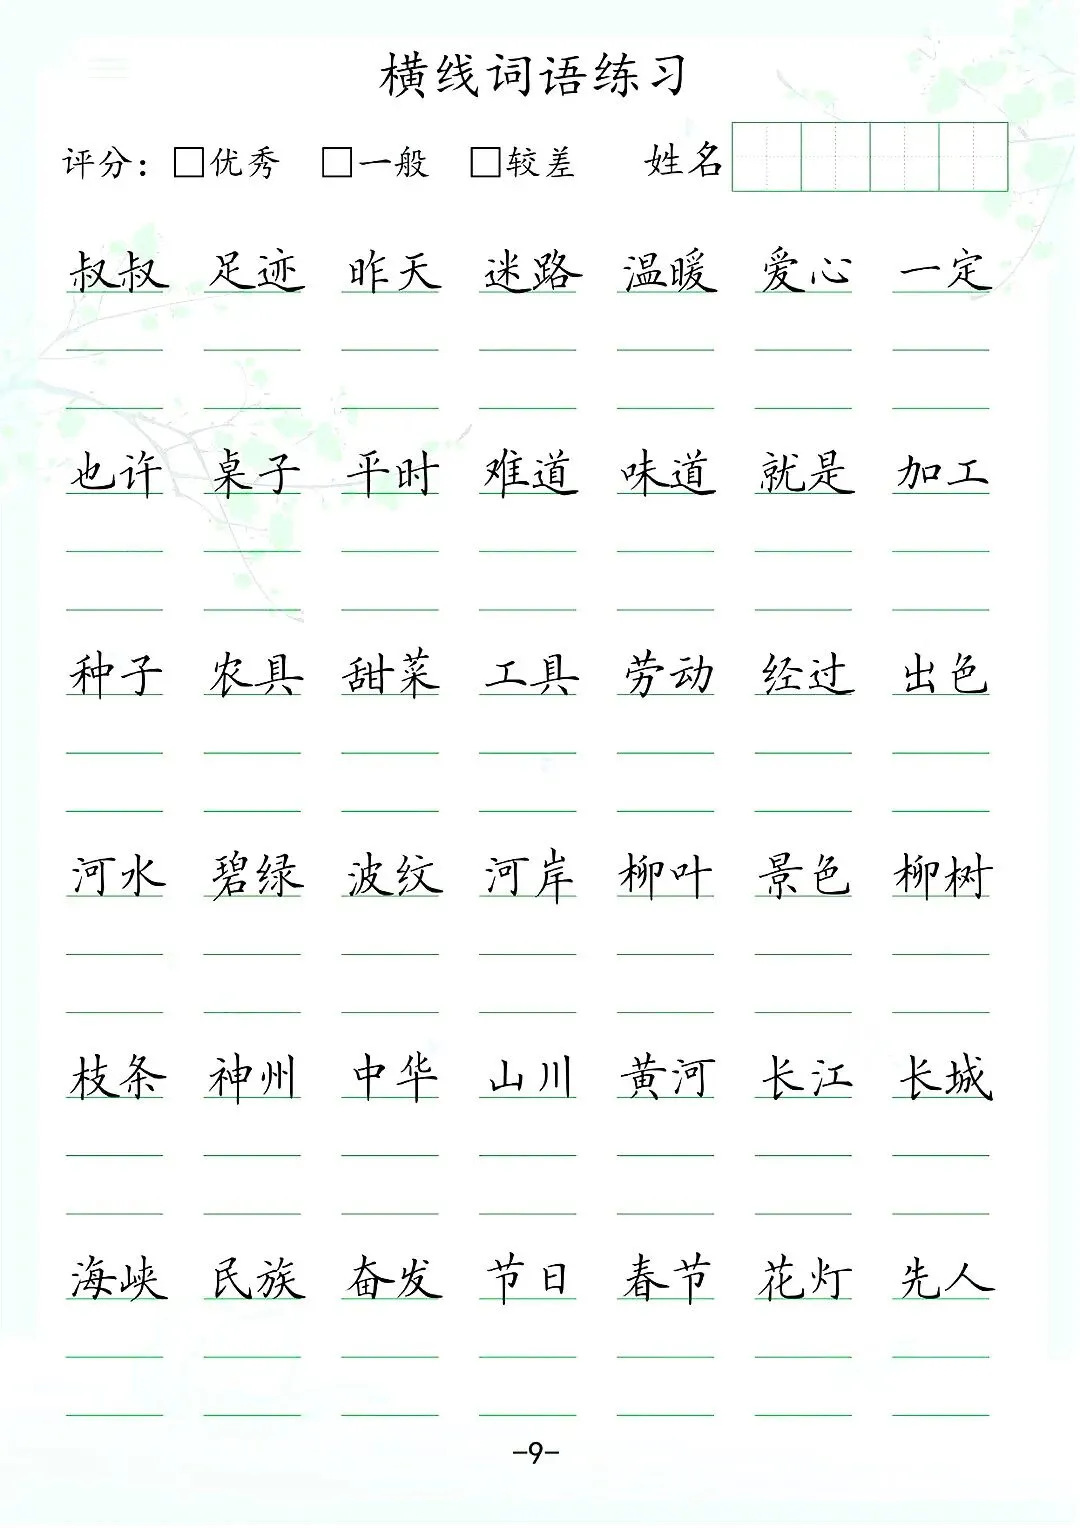 横线词语练习
评分：□优秀 □一般 □较差 姓名
叔叔 足迹 昨天 迷路 温暖 爱心 一定
也许 桌子 平时 难道 味道 就是 加工
种子 农具 甜菜 工具 劳动 经过 出色
河水 碧绿 波纹 河岸 柳叶 景色 柳树
枝条 神州 中华 山川 黄河 长江 长城
海峡 民族 奋发 节日 春节 花灯 先人
-9-